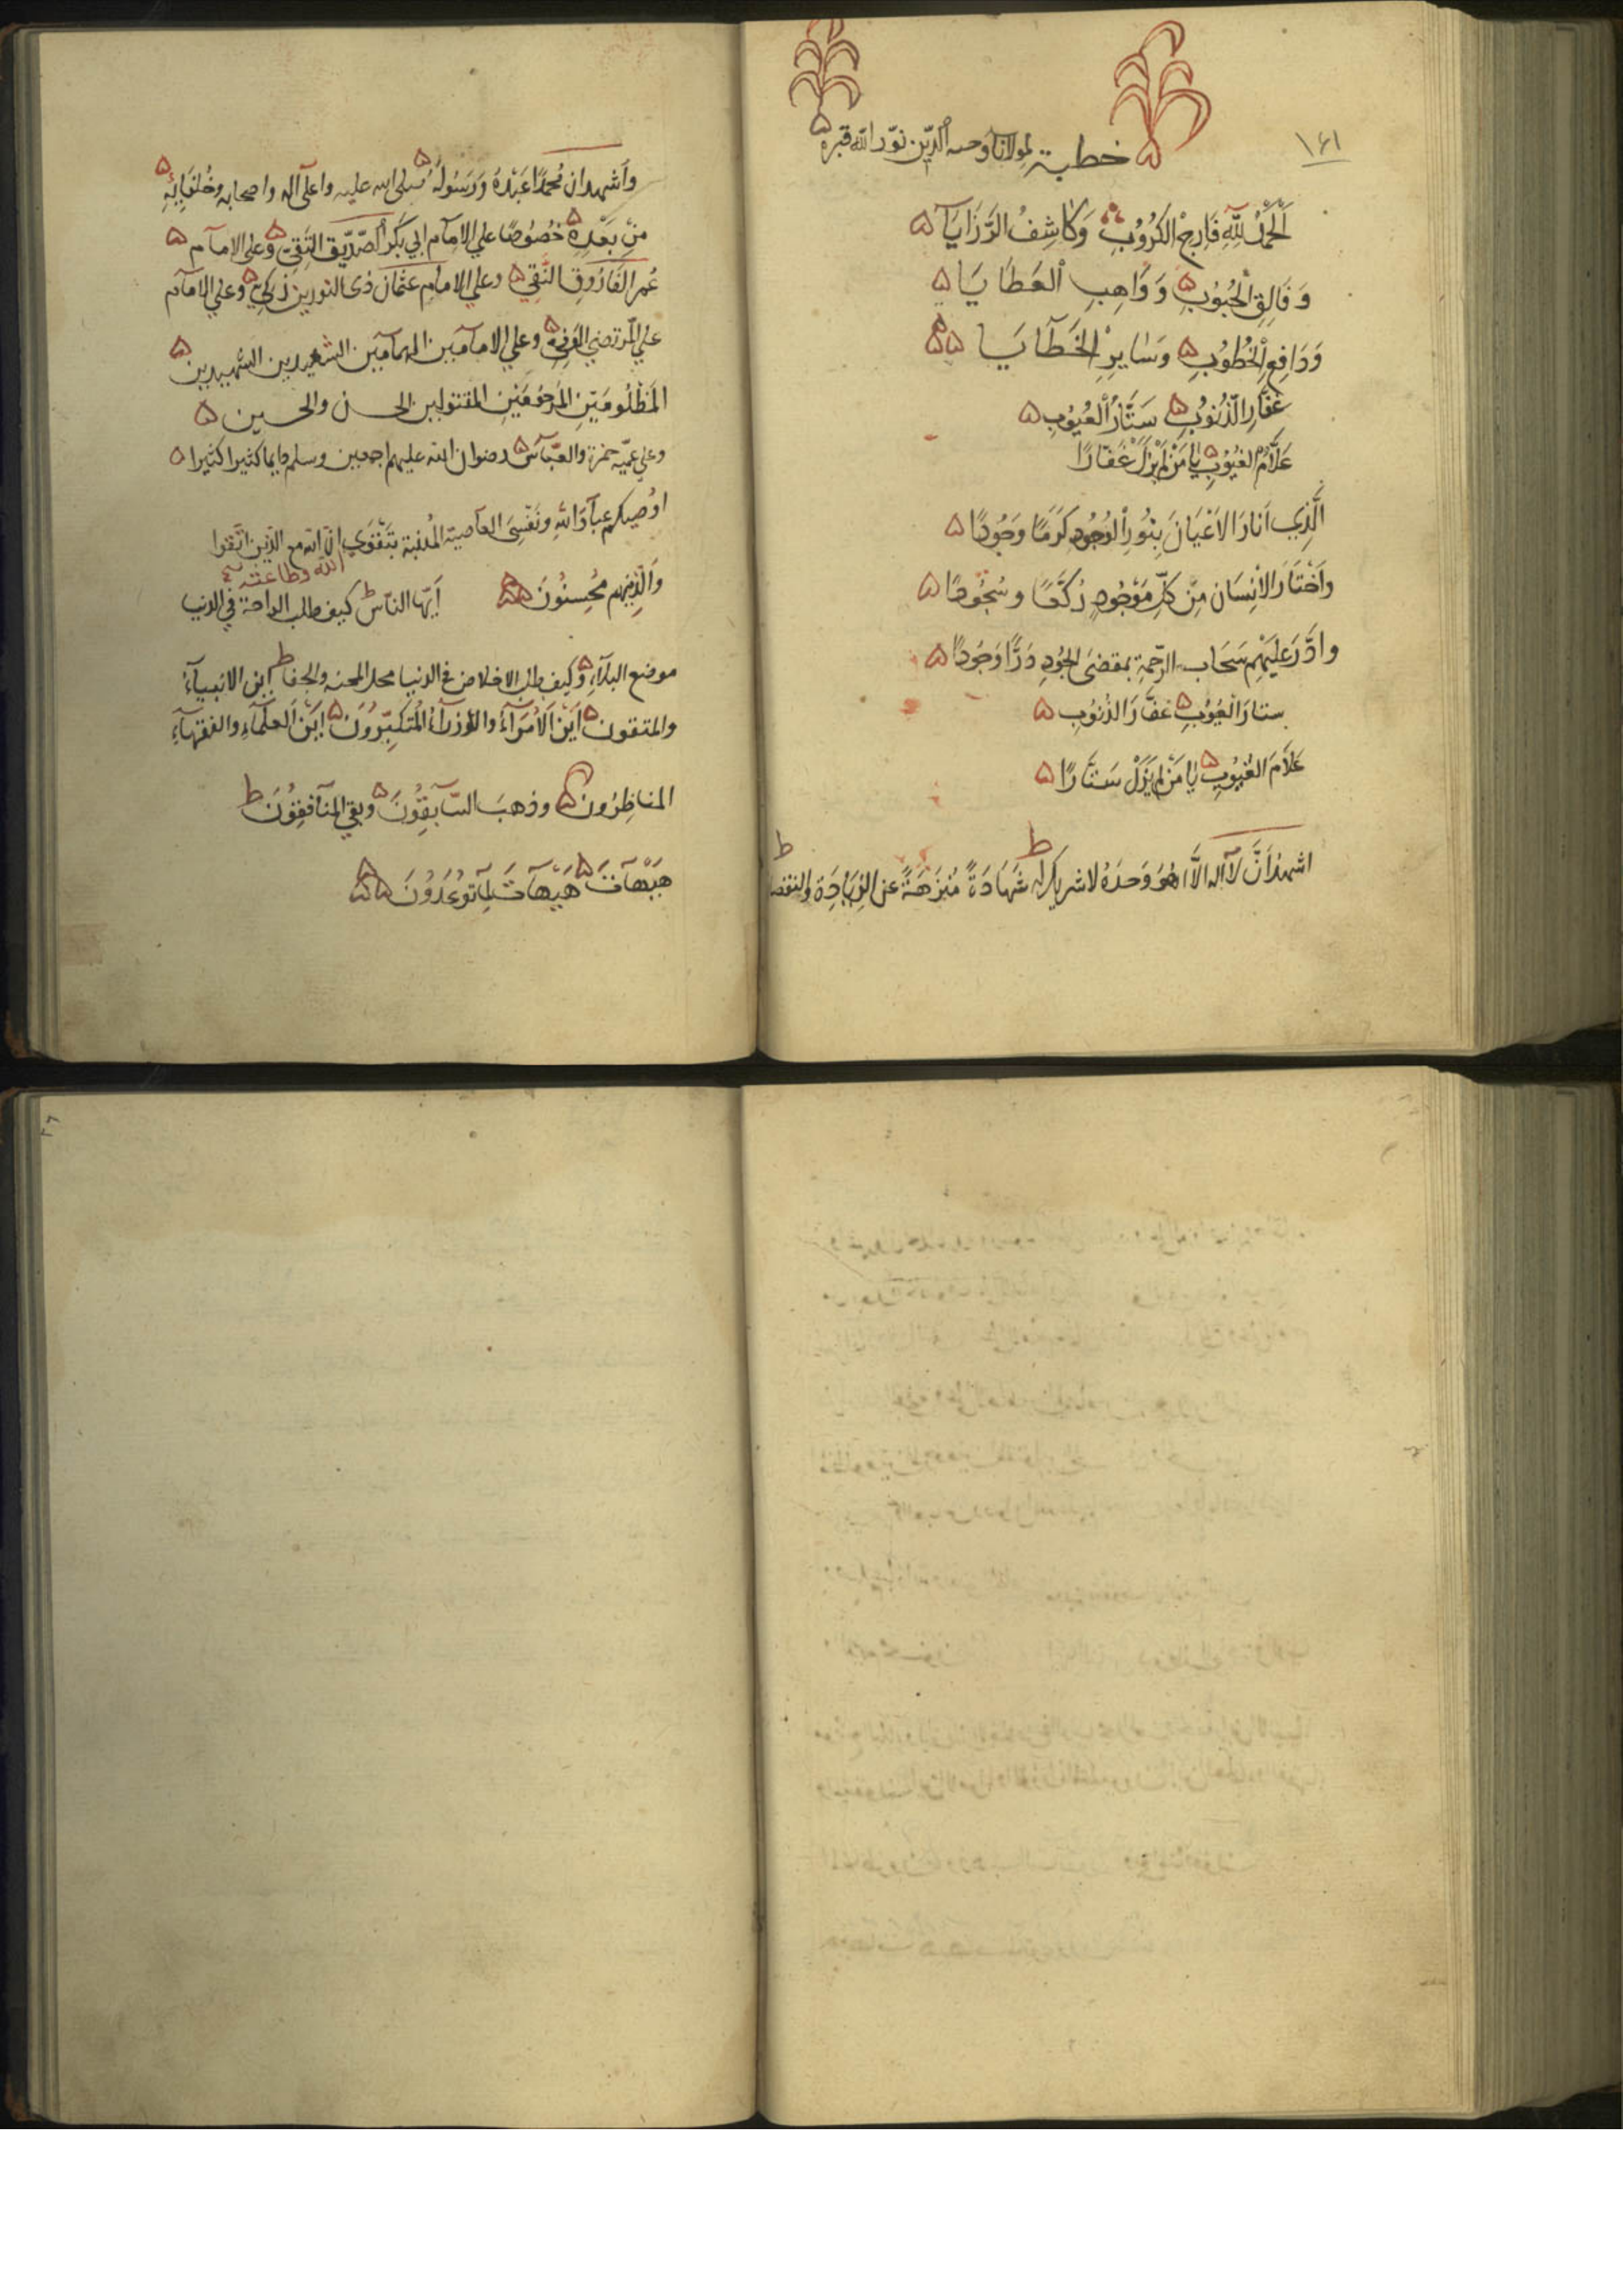 ١٤١
خطبة لمولانا وحيد الدين نوّر الله قبره
اَلْحَمْدُ لِلّٰهِ فَارِجِ الْكُرُوبِ وَكَاشِفُ الرَّزَايَا
وَفَالِقِ الْحُبُوبِ وَوَاهِبِ الْعَطَايَا
وَدَافِعِ الْخُطُوبِ وَسَايِرِ الْخَطَايَا
غَفَّارِ الذُّنُوبِ سَتَّارُ الْعُيُوبِ
عَلَّامُ الغُيُوبِ يَا مَنْ لَمْ يَزَلْ غَفَّارًا
الَّذِي اَنَارَ الاَعْيَانَ بِنُورِ الْوُجُودِ كَرَمًا وَجُودًا
وَاَخْتَارَ الاِنْسَانَ مِنْ كُلِّ مَوْجُودٍ رُكَّعًا وسُجُودًا
وادَّرَ عَلَيْهِم سَحَابَ الرَّحمةِ بمقضَى الجُودِ دَرًّا وَجُودًا
ستارَ الْعُيُوبِ غَفَّارَ الذُّنُوبِ
عَلَّامَ الغُيُوبِ يَا مَنْ لَمْ يَزَلْ سَتَّارًا
اشهدُ اَنَّ لَا اله الَّا هُوَ وَحدَهُ لا شريك له شَهَادَةً مُنَزَّهَةً عن الزِيَادَةِ والنقصا
وَاَشهد ان مُحمّدًا عَبْدُهُ وَرَسُولُهُ صلى الله عليه واعلى آله واصحابه وخُلَفَائِهِ
مِنْ بَعْدِهِ خصُوصًا علي الامام ابي بَكر الصّدّيق التقِيّ وعلى الامام
عُمر الفَارُوقِ النَّقِي وعلي الامام عثمان ذي النورين زكيّ وعلي الامام
علي المرتضي الوَفِيّ وعلي الامامَين الهمامَين السّعيدين الشّهيدين
المَظلُومَيْنِ المَرحُومَيْنِ المقتولين الحسن والحسين
وعلي عمّيه حمزة والعبّاس رضوان الله عليهم اجمعين وسلم دايما كثيرا كثيرا
اوُصيكم عبادَ الله ونَفْسِيَ العاصية المُذنبة بتَقْوَي انّ الله مع الذين اتّقوا
الله وطاعته
وَالّذِينَ هم مُحْسِنُونَ اَيّها النّاس كيف طلب الراحة في الدنيا
موضع البلاء وَكيف طلب الاخلاص في الدنيا محل المحنه والجفا اين الانبياء
والمتقون اَيْنَ الاُمَرَآءُ والوُزرآءُ المُتكَبِّرُونَ اَيْنَ العلماء والفقهاء
المناظِرُون وذهبَ السَّابِقُونَ وبقي المنافقُونَ
هَيْهَاتَ هَيْهَاتَ لِمَا توُعَدُونَ